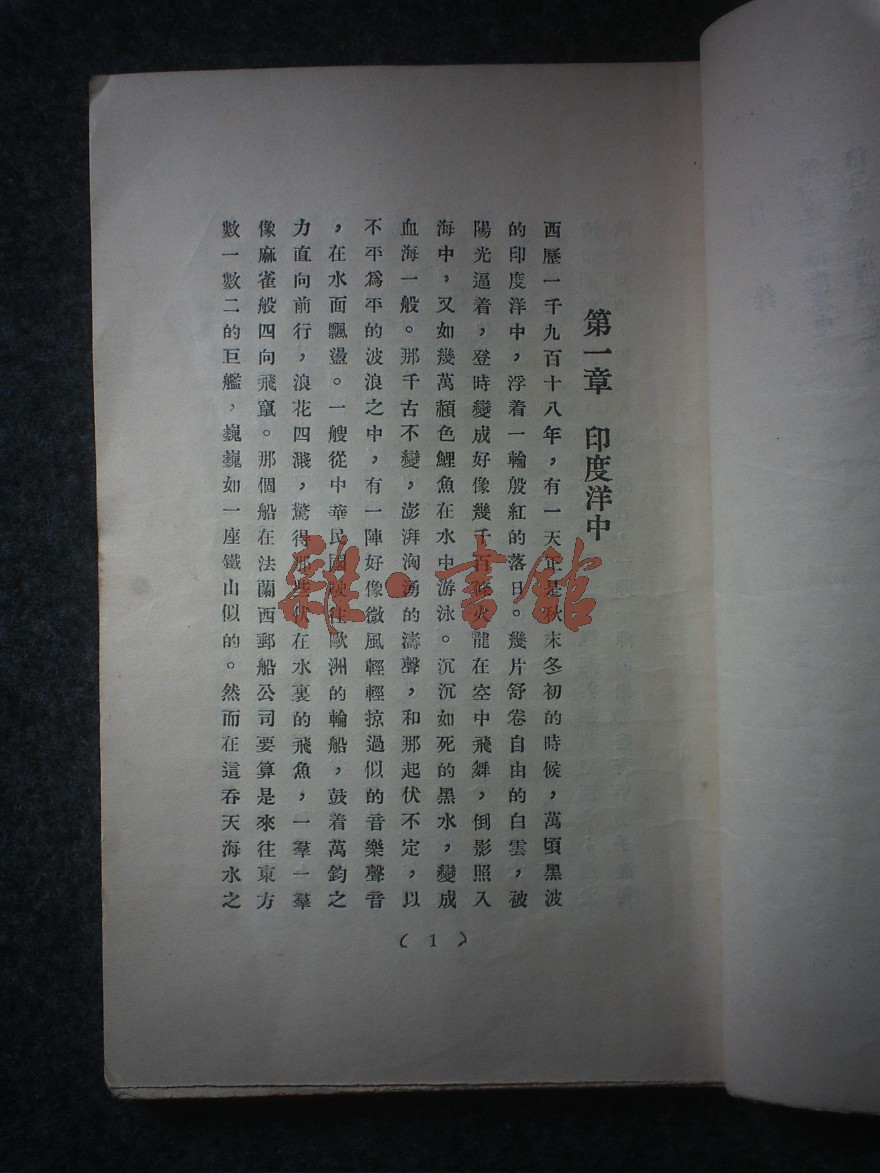 第一章　印度洋中
西歷一千九百十八年，有一天正是秋末冬初的時候，萬頃黑波
的印度洋中，浮着一輪殷紅的落日。幾片舒卷自由的白雲，被
陽光逼着，登時變成好像幾千百條火龍在空中飛舞，倒影照入
海中，又如幾萬頳色鯉魚在水中游泳。沉沉如死的黑水，變成
血海一般。那千古不變，澎湃洶湧的濤聲，和那起伏不定，以
不平爲平的波浪之中，有一陣好像微風輕輕掠過似的音樂聲音
，在水面飄盪。一艘從中華民國駛往歐洲的輪船，鼓着萬鈞之
力直向前行，浪花四濺，驚得那些伏在水裏的飛魚，一羣一羣
像麻雀般四向飛竄。那個船在法蘭西郵船公司要算是來往東方
數一數二的巨艦，巍巍如一座鐵山似的。然而在這吞天海水之
( 1 )
雜·書館